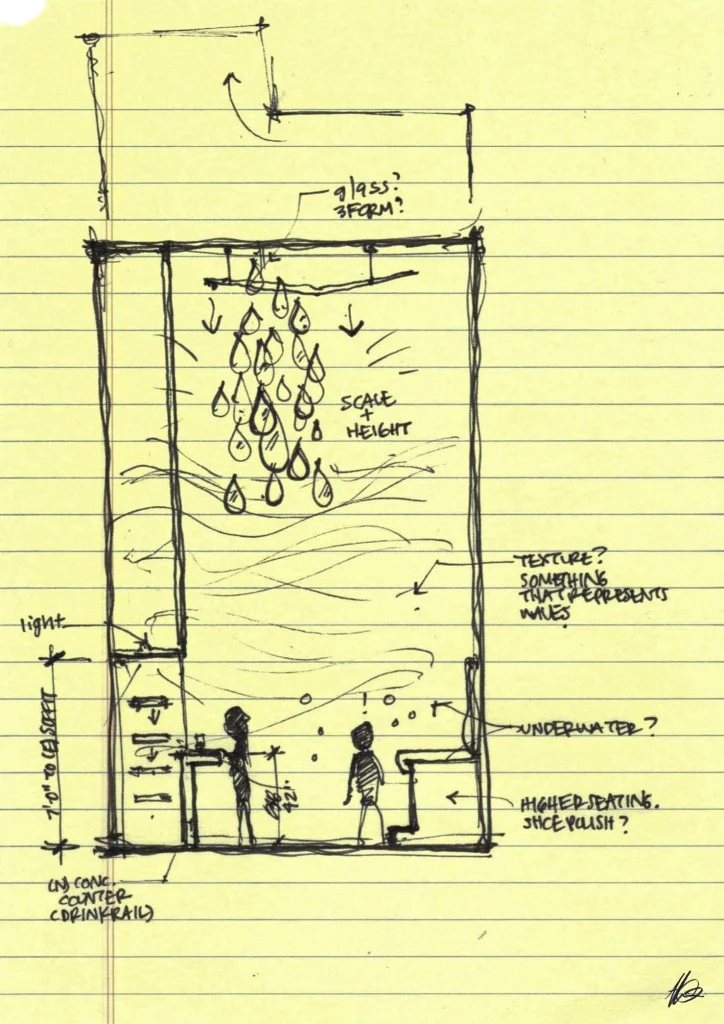 glass?
3FORM?
SCALE
+
HEIGHT
TEXTURE?
SOMETHING
THAT REPRESENTS
WAVES.
light
7'-0" TO (E) SOFFIT
!
UNDERWATER?
42".
HIGHER SEATING.
SHOE POLISH?
(N) CONC.
COUNTER
(DRINKRAIL)